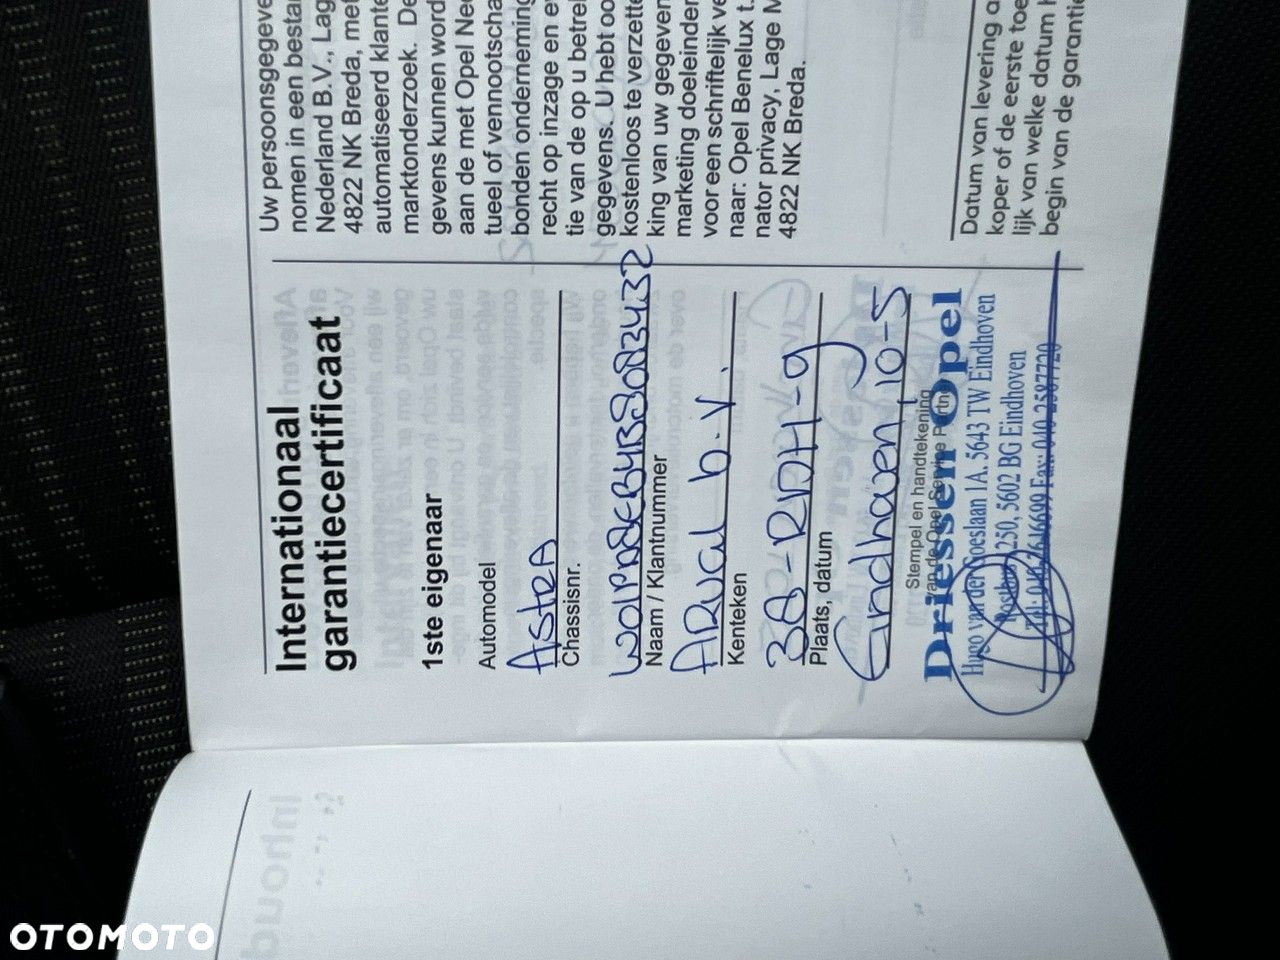 Internationaal
garantiecertificaat
1ste eigenaar
Automodel
Astra
Chassisnr.
Naam / Klantnummer
Arval b.v.
Kenteken
Plaats, datum
Eindhoven, 10-5
Stempel en handtekening
van de Opel Service Partner
Driessen Opel
Hugo van der Goeslaan 1A, 5643 TW Eindhoven
Postbus 250, 5602 BG Eindhoven
Fax: 040-2587720
Uw persoonsgegeve
nomen in een bestan
Nederland B.V., Lag
4822 NK Breda, met
automatiseerd klante
marktonderzoek. De
gevens kunnen word
aan de met Opel Ne
tueel of vennootscha
bonden onderneming
recht op inzage en e
tie van de op u betrel
gegevens. U hebt oo
kosteloos te verzette
king van uw gegeven
marketing doeleinder
voor een schriftelijk ve
naar: Opel Benelux t.
nator privacy, Lage M
4822 NK Breda.
Datum van levering a
koper of de eerste toe
lijk van welke datum h
begin van de garantie
OTOMOTO